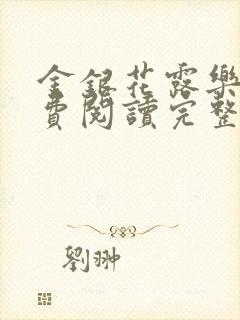 金銀花露樂
費閱讀完整
劉翀